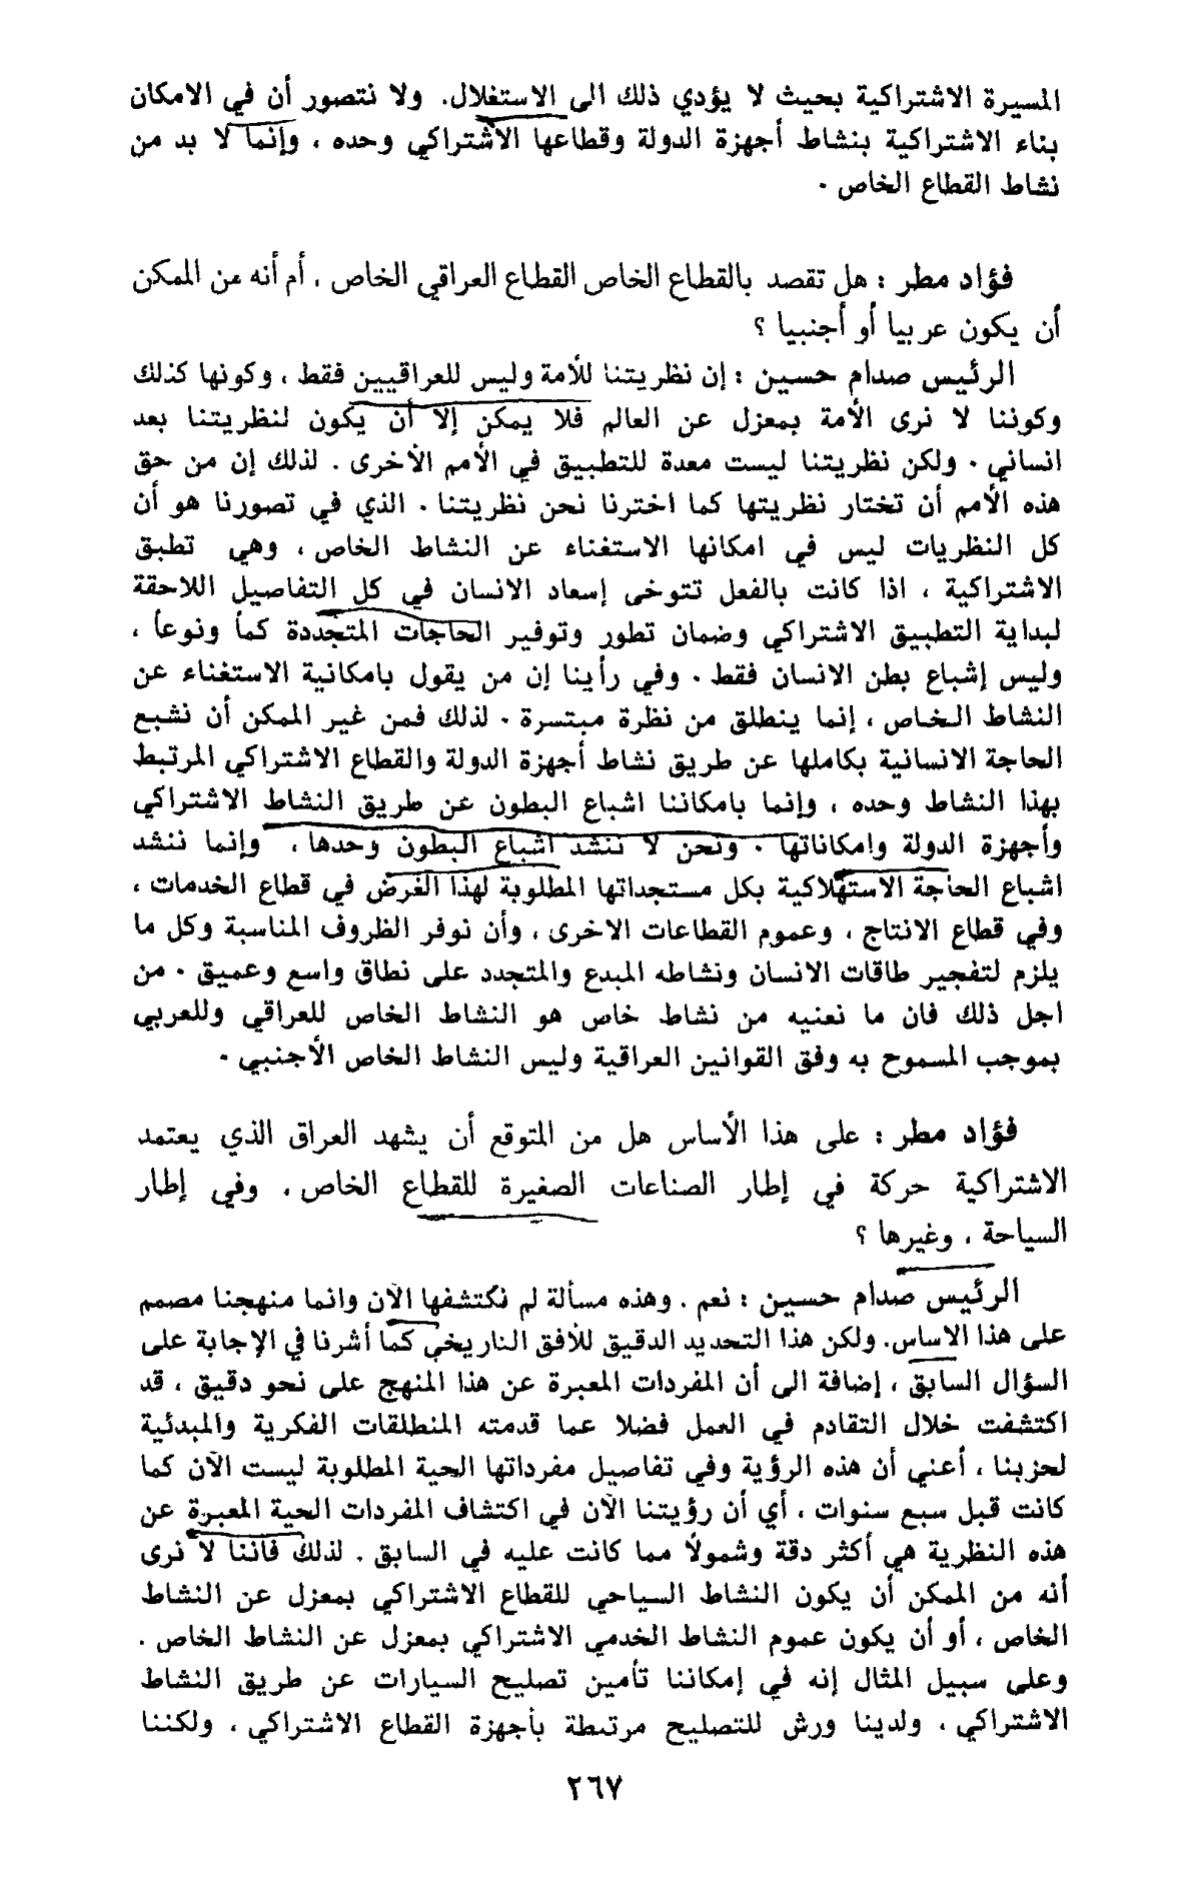 المسيرة الاشتراكية بحيث لا يؤدي ذلك الى الاستغلال. ولا نتصور أن في الامكان
بناء الاشتراكية بنشاط أجهزة الدولة وقطاعها الاشتراكي وحده ، وإنما لا بد من
نشاط القطاع الخاص .
فؤاد مطر : هل تقصد بالقطاع الخاص القطاع العراقي الخاص ، أم أنه من الممكن
أن يكون عربيا أو أجنبيا ؟
الرئيس صدام حسين : إن نظريتنا للأمة وليس للعراقيين فقط ، وكونها كذلك
وكوننا لا نرى الأمة بمعزل عن العالم فلا يمكن إلا أن يكون لنظريتنا بعد
انساني . ولكن نظريتنا ليست معدة للتطبيق في الأمم الأخرى . لذلك إن من حق
هذه الأمم أن تختار نظريتها كما اخترنا نحن نظريتنا . الذي في تصورنا هو أن
كل النظريات ليس في امكانها الاستغناء عن النشاط الخاص ، وهي تطبق
الاشتراكية ، اذا كانت بالفعل تتوخى إسعاد الانسان في كل التفاصيل اللاحقة
لبداية التطبيق الاشتراكي وضمان تطور وتوفير الحاجات المتجددة كماً ونوعاً ،
وليس إشباع بطن الانسان فقط . وفي رأينا إن من يقول بامكانية الاستغناء عن
النشاط الخاص ، إنما ينطلق من نظرة مبتسرة . لذلك فمن غير الممكن أن نشبع
الحاجة الانسانية بكاملها عن طريق نشاط أجهزة الدولة والقطاع الاشتراكي المرتبط
بهذا النشاط وحده ، وإنما بامكاننا اشباع البطون عن طريق النشاط الاشتراكي
وأجهزة الدولة وامكاناتها . ونحن لا ننشد اشباع البطون وحدها ، وإنما ننشد
اشباع الحاجة الاستهلاكية بكل مستجداتها المطلوبة لهذا الغرض في قطاع الخدمات ،
وفي قطاع الانتاج ، وعموم القطاعات الاخرى ، وأن نوفر الظروف المناسبة وكل ما
يلزم لتفجير طاقات الانسان ونشاطه المبدع والمتجدد على نطاق واسع وعميق . من
اجل ذلك فان ما نعنيه من نشاط خاص هو النشاط الخاص للعراقي وللعربي
بموجب المسموح به وفق القوانين العراقية وليس النشاط الخاص الأجنبي .
فؤاد مطر : على هذا الأساس هل من المتوقع أن يشهد العراق الذي يعتمد
الاشتراكية حركة في إطار الصناعات الصغيرة للقطاع الخاص ، وفي إطار
السياحة ، وغيرها ؟
الرئيس صدام حسين : نعم . وهذه مسألة لم نكتشفها الآن وانما منهجنا مصمم
على هذا الاساس. ولكن هذا التحديد الدقيق للأفق التاريخي كما أشرنا في الإجابة على
السؤال السابق ، إضافة الى أن المفردات المعبرة عن هذا المنهج على نحو دقيق ، قد
اكتشفت خلال التقادم في العمل فضلا عما قدمته المنطلقات الفكرية والمبدئية
لحزبنا ، أعني أن هذه الرؤية وفي تفاصيل مفرداتها الحية المطلوبة ليست الآن كما
كانت قبل سبع سنوات ، أي أن رؤيتنا الآن في اكتشاف المفردات الحية المعبرة عن
هذه النظرية هي أكثر دقة وشمولاً مما كانت عليه في السابق . لذلك فاننا لا نرى
أنه من الممكن أن يكون النشاط السياحي للقطاع الاشتراكي بمعزل عن النشاط
الخاص ، أو أن يكون عموم النشاط الخدمي الاشتراكي بمعزل عن النشاط الخاص .
وعلى سبيل المثال إنه في إمكاننا تأمين تصليح السيارات عن طريق النشاط
الاشتراكي ، ولدينا ورش للتصليح مرتبطة بأجهزة القطاع الاشتراكي ، ولكننا
٢٦٧